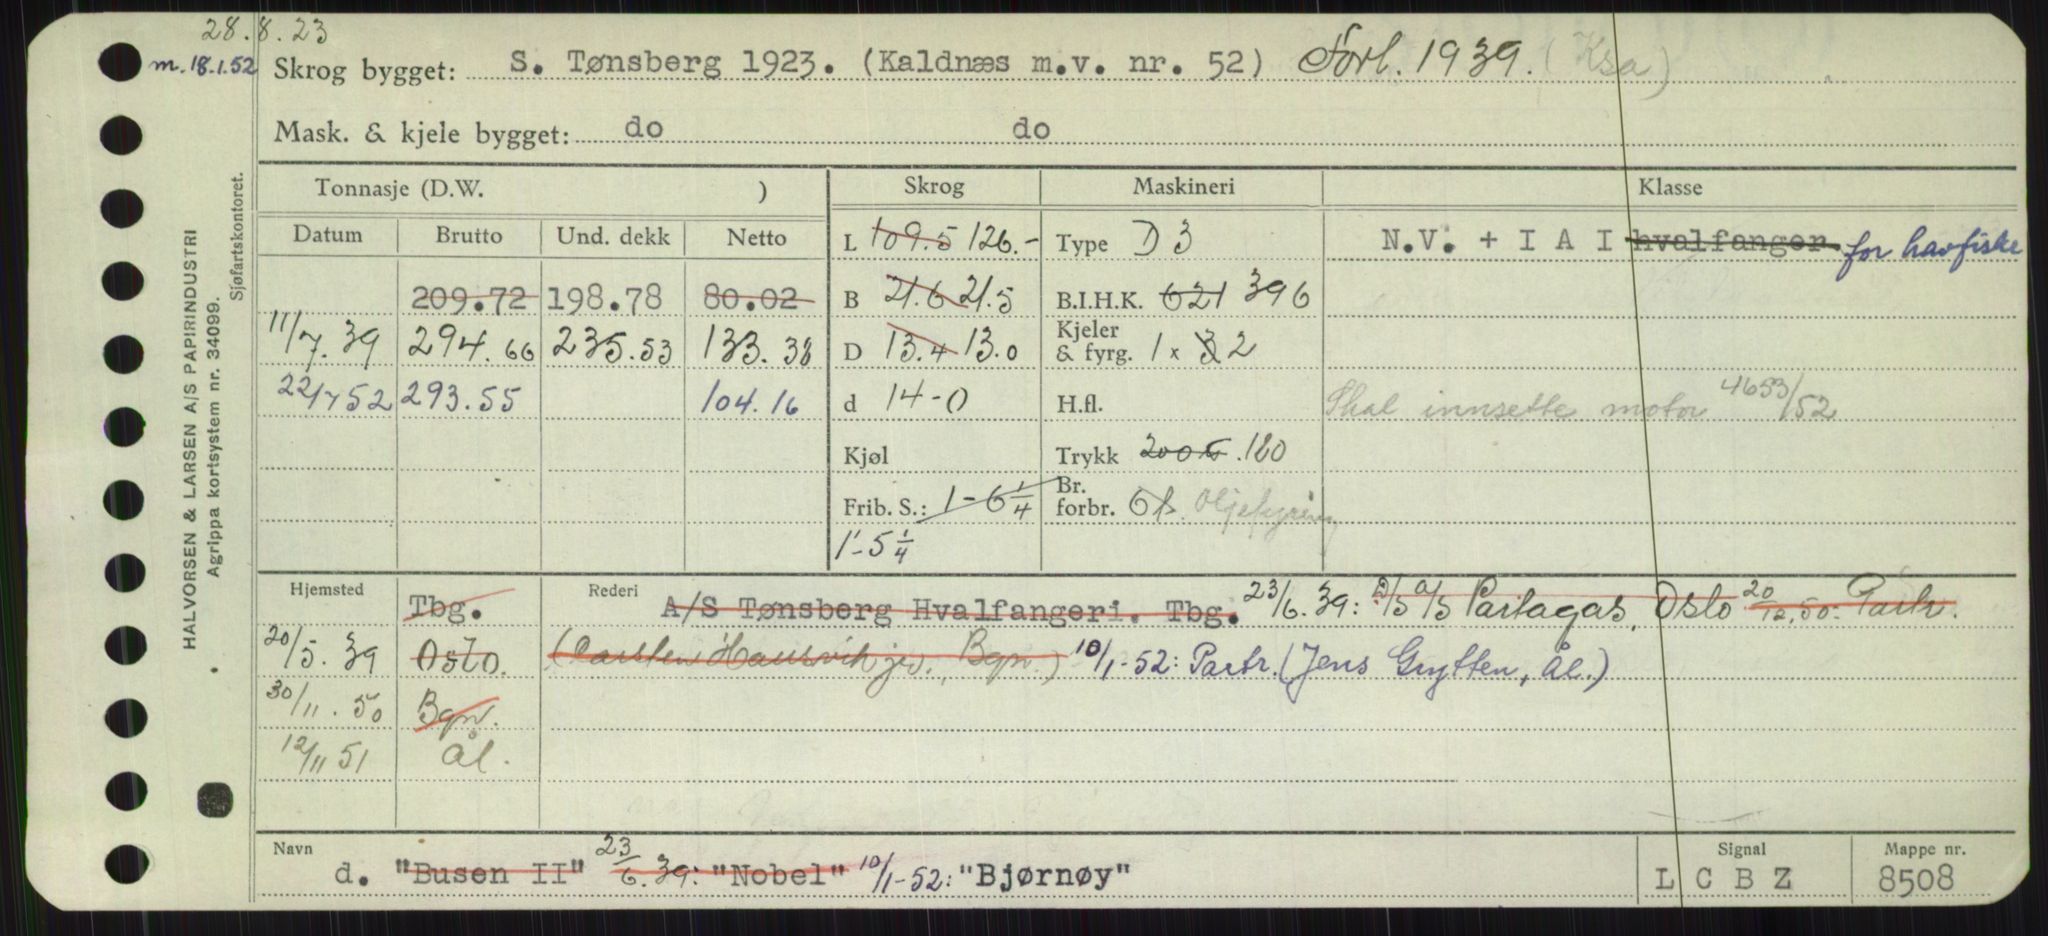 28.8.23
m. 18.1.52 Skrog bygget: S. Tønsberg 1923. (Kaldnæs m.v. nr. 52) Forl. 1939. (Ksa)
Mask. & kjele bygget: do do
Tonnasje (D.W. ) Skrog Maskineri Klasse
Datum Brutto Und. dekk Netto L 109.5 126.- Type D 3 N.V. + I A I hvalfanger for havfiske
209.72 198.78 80.02 B 21.6 21.5 B.I.H.K. 621 396
11/7.39 294.66 235.53 133.38 D 13.4 13.0 Kjeler & fyrg. 1 x 3 2
22/7 52 293.55 104.16 d 14-0 H.fl. Skal innsette motor 4653/52
Kjøl Trykk 200 180
Frib. S.: 1-6 1/4 Br. forbr. Oljefyring
1'-5 1/4
Hjemsted Tbg. Rederi A/S Tønsberg Hvalfangeri. Tbg. 23/6.39: D/S A/S Partagas, Oslo 20/12.50: Partr.
20/5.39 Oslo. (Carsten Hausvik jr., Bgn.) 10/1-52: Partr. (Jens Grytten, Ål.)
30/11.50 Bgn.
12/11 51 Ål.
Navn d. "Busen II" 23/6.39: "Nobel" 10/1-52: "Bjørnøy" Signal L C B Z Mappe nr. 8508
HALVORSEN & LARSEN A/S PAPIRINDUSTRI
Agrippa kortsystem nr. 34099.
Sjøfartskontoret.